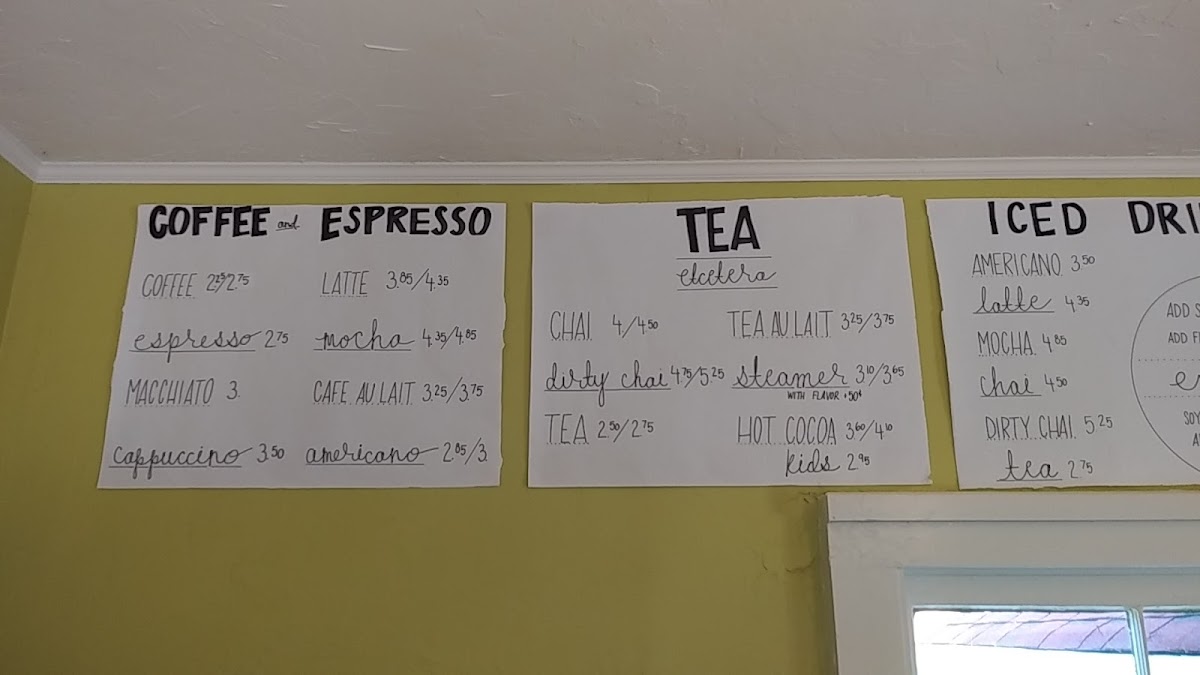 COFFEE and ESPRESSO
COFFEE 2.25/2.75
LATTE 3.85/4.35
espresso 2.75
mocha 4.35/4.85
MACCHIATO 3.
CAFE AU LAIT 3.25/3.75
cappuccino 3.50
americano 2.85/3.
TEA
etcetera
CHAI 4/4.50
TEA AU LAIT 3.25/3.75
dirty chai 4.75/5.25
steamer 3.10/3.65
WITH FLAVOR +50¢
TEA 2.50/2.75
HOT COCOA 3.60/4.10
kids 2.95
ICED DRI
AMERICANO 3.50
latte 4.35
MOCHA 4.85
chai 4.50
DIRTY CHAI 5.25
tea 2.75
ADD S
ADD F
SOY